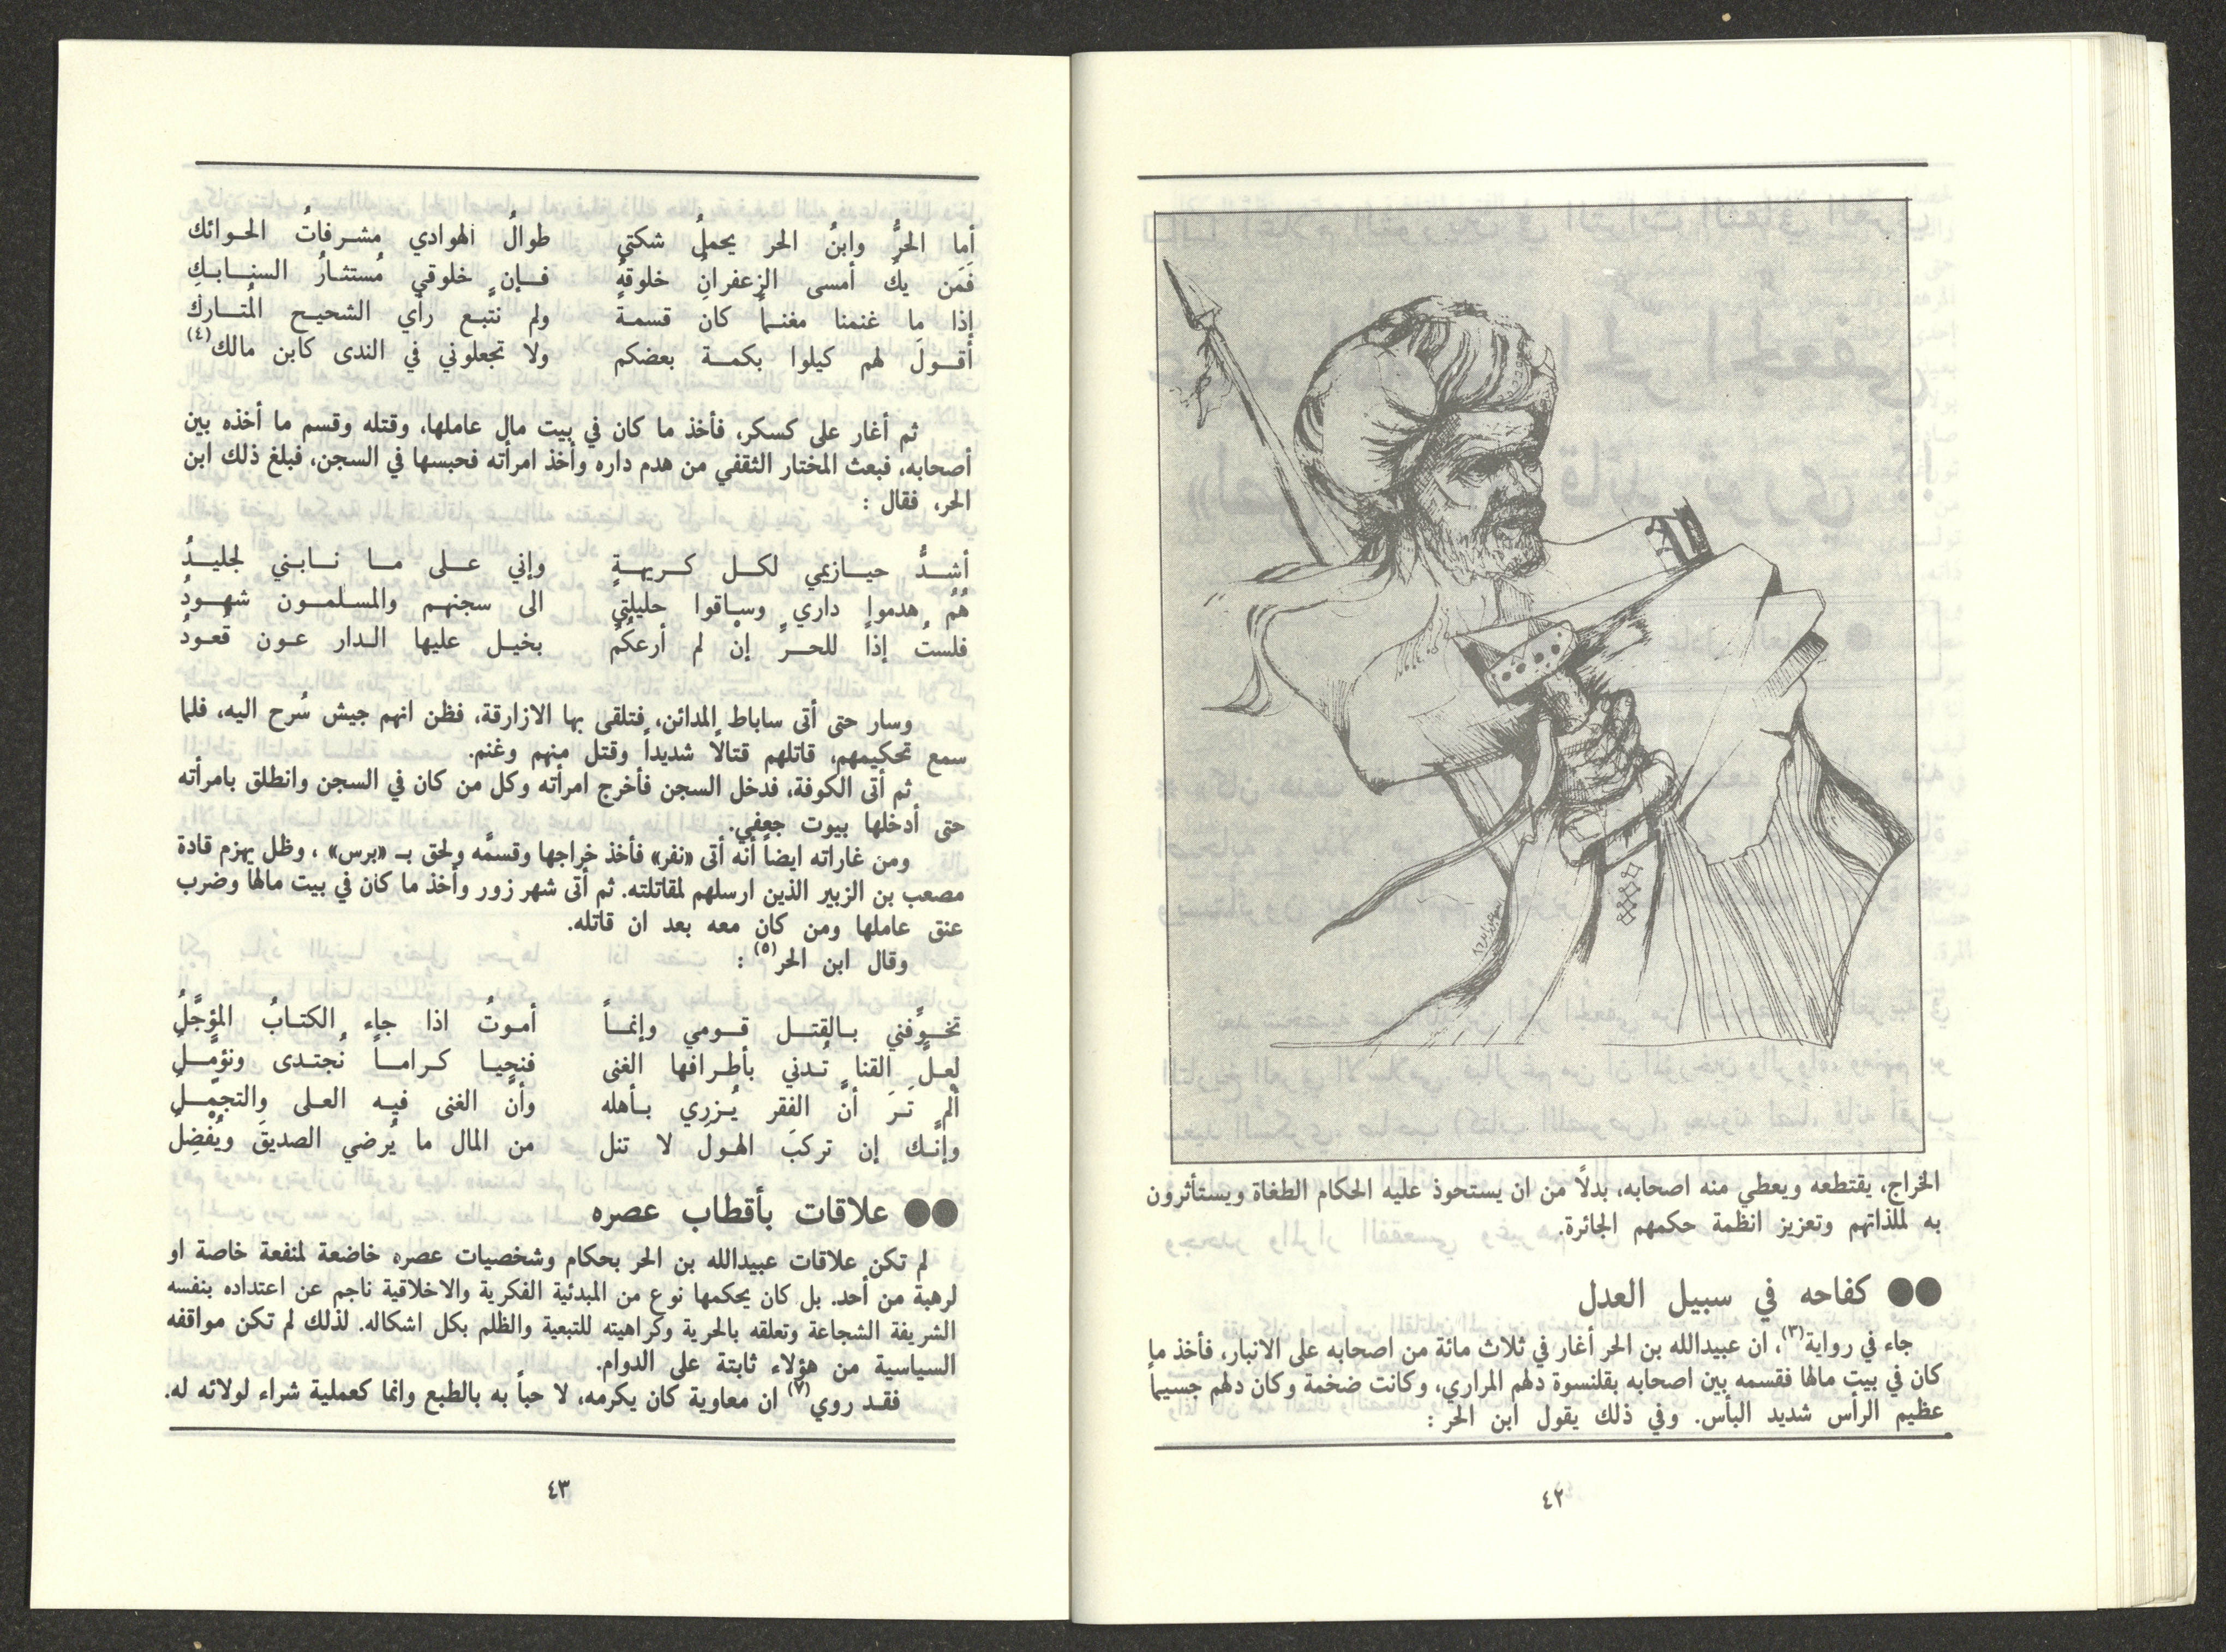 الخراج، يقتطعه ويعطي منه اصحابه، بدلًا من ان يستحوذ عليه الحكام الطغاة ويستأثرون
به لملذاتهم وتعزيز انظمة حكمهم الجائرة.
●● كفاحه في سبيل العدل
جاء في رواية(٣)، ان عبيدالله بن الحر أغار في ثلاث مائة من اصحابه على الانبار، فأخذ ما
كان في بيت مالها فقسمه بين اصحابه بقلنسوة دلهم المراري، وكانت ضخمة وكان دلهم جسيماً
عظيم الرأس شديد البأس. وفي ذلك يقول ابن الحر :
٤٢
أما الحرُّ وابنُ الحر يحملُ شكتي طوالُ الهوادي مشرفاتُ الحوائك
فَمَن يكُ أمسى الزعفرانِ خلوقهُ فإن خلوقي مُستثارُ السنابكِ
إذا ما غنمنا مغنماً كان قسمةً ولم نتّبع رأي الشحيح المُتارك
أقولَ لهم كيلوا بكمة بعضكم ولا تجعلوني في الندى كابن مالك(٤)
ثم أغار على كسكر، فأخذ ما كان في بيت مال عاملها، وقتله وقسم ما أخذه بين
أصحابه، فبعث المختار الثقفي من هدم داره وأخذ امرأته فحبسها في السجن، فبلغ ذلك ابن
الحر، فقال :
أشدُّ حيازيمي لكل كريهةٍ وإني على ما نابني لجليدُ
هُمُ هدموا داري وساقوا حليلتي الى سجنهم والمسلمون شهودُ
فلستُ إذاً للحرِّ إنْ لم أرعكُمُ بخيل عليها الدار عون قُعودُ
وسار حتى أتى ساباط المدائن، فتلقى بها الازارقة، فظن انهم جيش سُرح اليه، فلما
سمع تحكيمهم، قاتلهم قتالًا شديداً وقتل منهم وغنم.
ثم أتى الكوفة، فدخل السجن فأخرج امرأته وكل من كان في السجن وانطلق بامرأته
حتى أدخلها بيوت جعفي.
ومن غاراته ايضاً أنه أتى «نفر» فأخذ خراجها وقسمَّه ولحق بـ «برس» ، وظل يهزم قادة
مصعب بن الزبير الذين ارسلهم لمقاتلته. ثم أتى شهر زور وأخذ ما كان في بيت مالها وضرب
عنق عاملها ومن كان معه بعد ان قاتله.
وقال ابن الحر(٥) :
تخوِّفني بالقتل قومي وإنماً أموتُ اذا جاء الكتابُ المؤجَّلُ
لعلّ القنا تُدني بأطرافها الغنى فنحيا كراماً نُجتدى ونؤمِّلُ
ألمْ تَرَ أنّ الفقر يُزرِي بأهله وأن الغنى فيه العلى والتجمّلُ
وإنّك إن تركبَ الهولَ لا تنل من المال ما يُرضي الصديقَ ويُفْضِلُ
●● علاقات بأقطاب عصره
لم تكن علاقات عبيدالله بن الحر بحكام وشخصيات عصره خاضعة لمنفعة خاصة او
لرهبة من أحد. بل كان يحكمها نوع من المبدئية الفكرية والاخلاقية ناجم عن اعتداده بنفسه
الشريفة الشجاعة وتعلقه بالحرية وكراهيته للتبعية والظلم بكل اشكاله. لذلك لم تكن مواقفه
السياسية من هؤلاء ثابتة على الدوام.
فقد روي(٧) ان معاوية كان يكرمه، لا حباً به بالطبع وانما كعملية شراء لولائه له.
٤٣